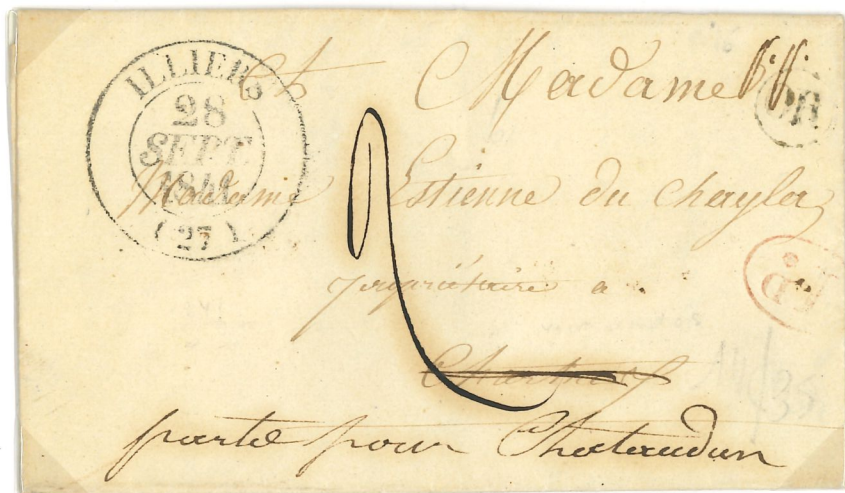 ILLIERS
28
SEPT.
1841
(27)
A Madame
Madame Estienne du Chaylas
propriétaire a
Chartres
2
partie pour Chateaudun
OR
35